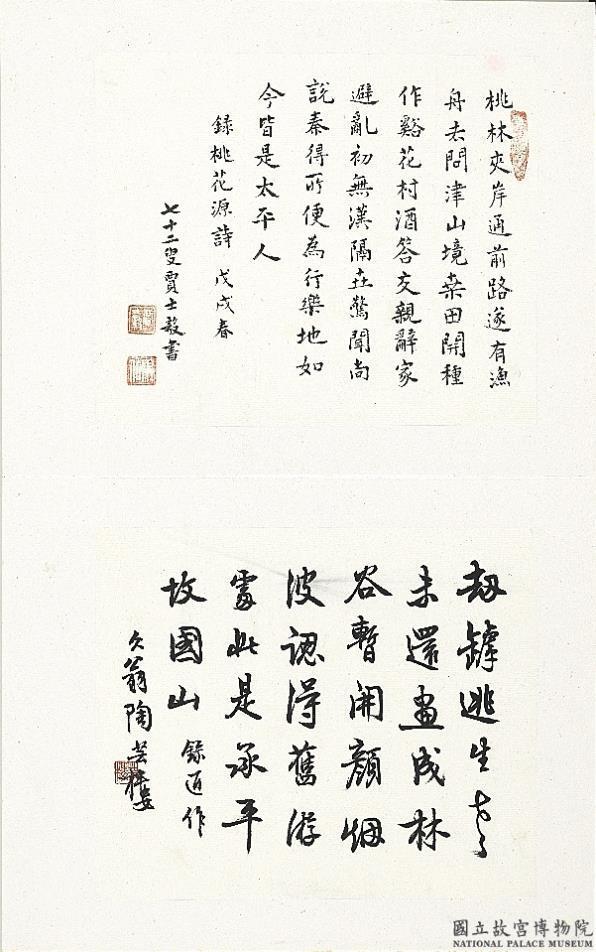 桃林夾岸通前路遂有漁
舟去問津山境桒田開種
作谿花村酒答交親辭家
避亂初無漢隔世驚聞尚
說秦得所便為行樂地如
今皆是太平人
錄桃花源詩 戊戌春
七十二叟賈士毅書
劫罅逃生老
未還畫成林
谷暫開顏烟
波認得舊游
處此是承平
故國山 錄近作
久翁陶芸樓
國立故宮博物院
NATIONAL PALACE MUSEUM